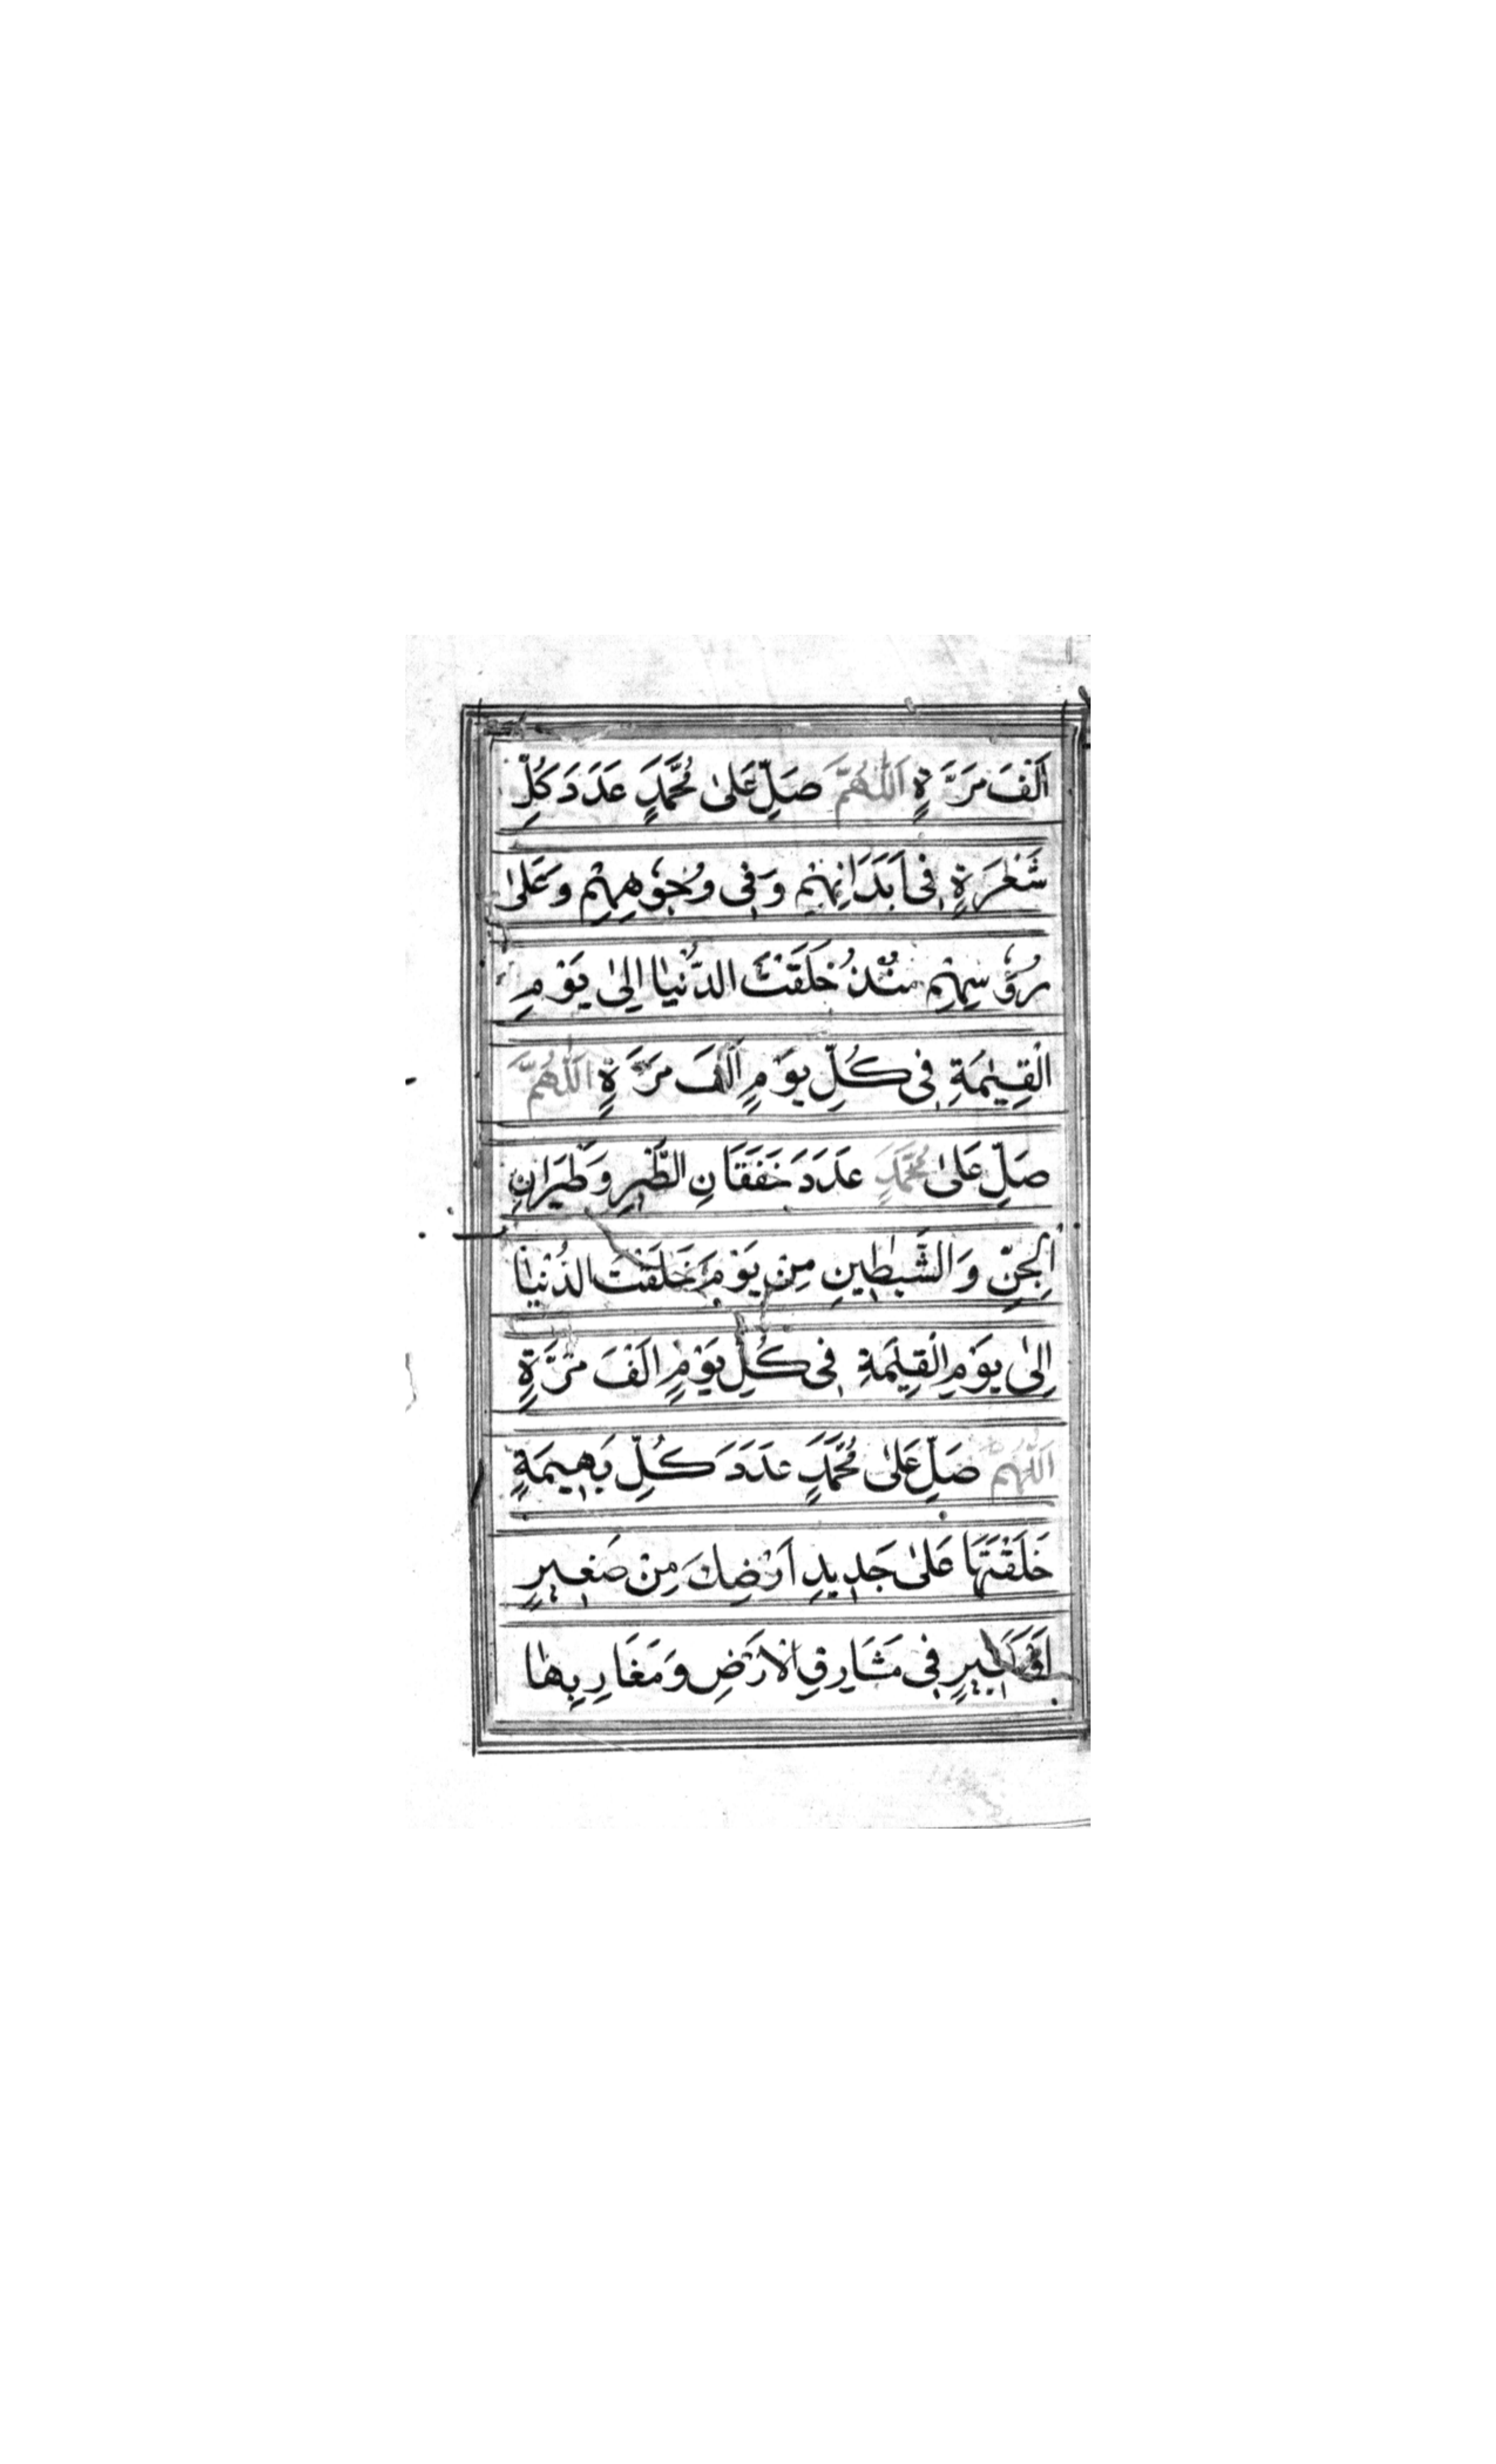 اَلْفَ مَرَّةٍ اَللّٰهُمَّ صَلِّ عَلٰى مُحَمَّدٍ عَدَدَ كُلِّ
شَعْرَةٍ فِى اَبْدَانِهِمْ وَفِى وُجُوْهِهِمْ وَعَلٰى
رُؤُسِهِمْ مُنْذُ خَلَقْتَ الدُّنْيَا اِلٰى يَوْمِ
الْقِيٰمَةِ فِى كُلِّ يَوْمٍ اَلْفَ مَرَّةٍ اَللّٰهُمَّ
صَلِّ عَلٰى مُحَمَّدٍ عَدَدَ خَفَقَانِ الطَّيْرِ وَطَيَرَانِ
الْجِنِّ وَالشَّيٰطِيْنِ مِنْ يَوْمَ خَلَقْتَ الدُّنْيَا
اِلٰى يَوْمِ الْقِيٰمَةِ فِى كُلِّ يَوْمٍ اَلْفَ مَرَّةٍ
اَللّٰهُمَّ صَلِّ عَلٰى مُحَمَّدٍ عَدَدَ كُلِّ بَهِيْمَةٍ
خَلَقْتَهَا عَلٰى جَدِيْدِ اَرْضِكَ مِنْ صَغِيْرٍ
اَوْ كَبِيْرٍ فِى مَشَارِقِ الْاَرْضِ وَمَغَارِبِهَا